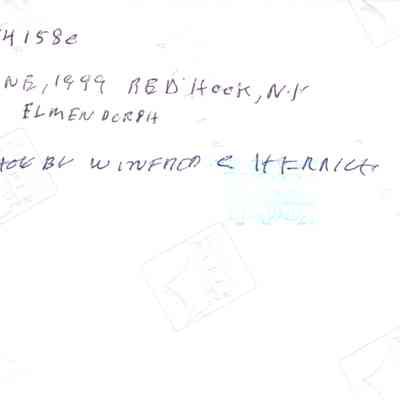 4158c
NE, 1999 RED HOOK, N.Y
ELMENDORPH
BY WINFRED C HERRICK